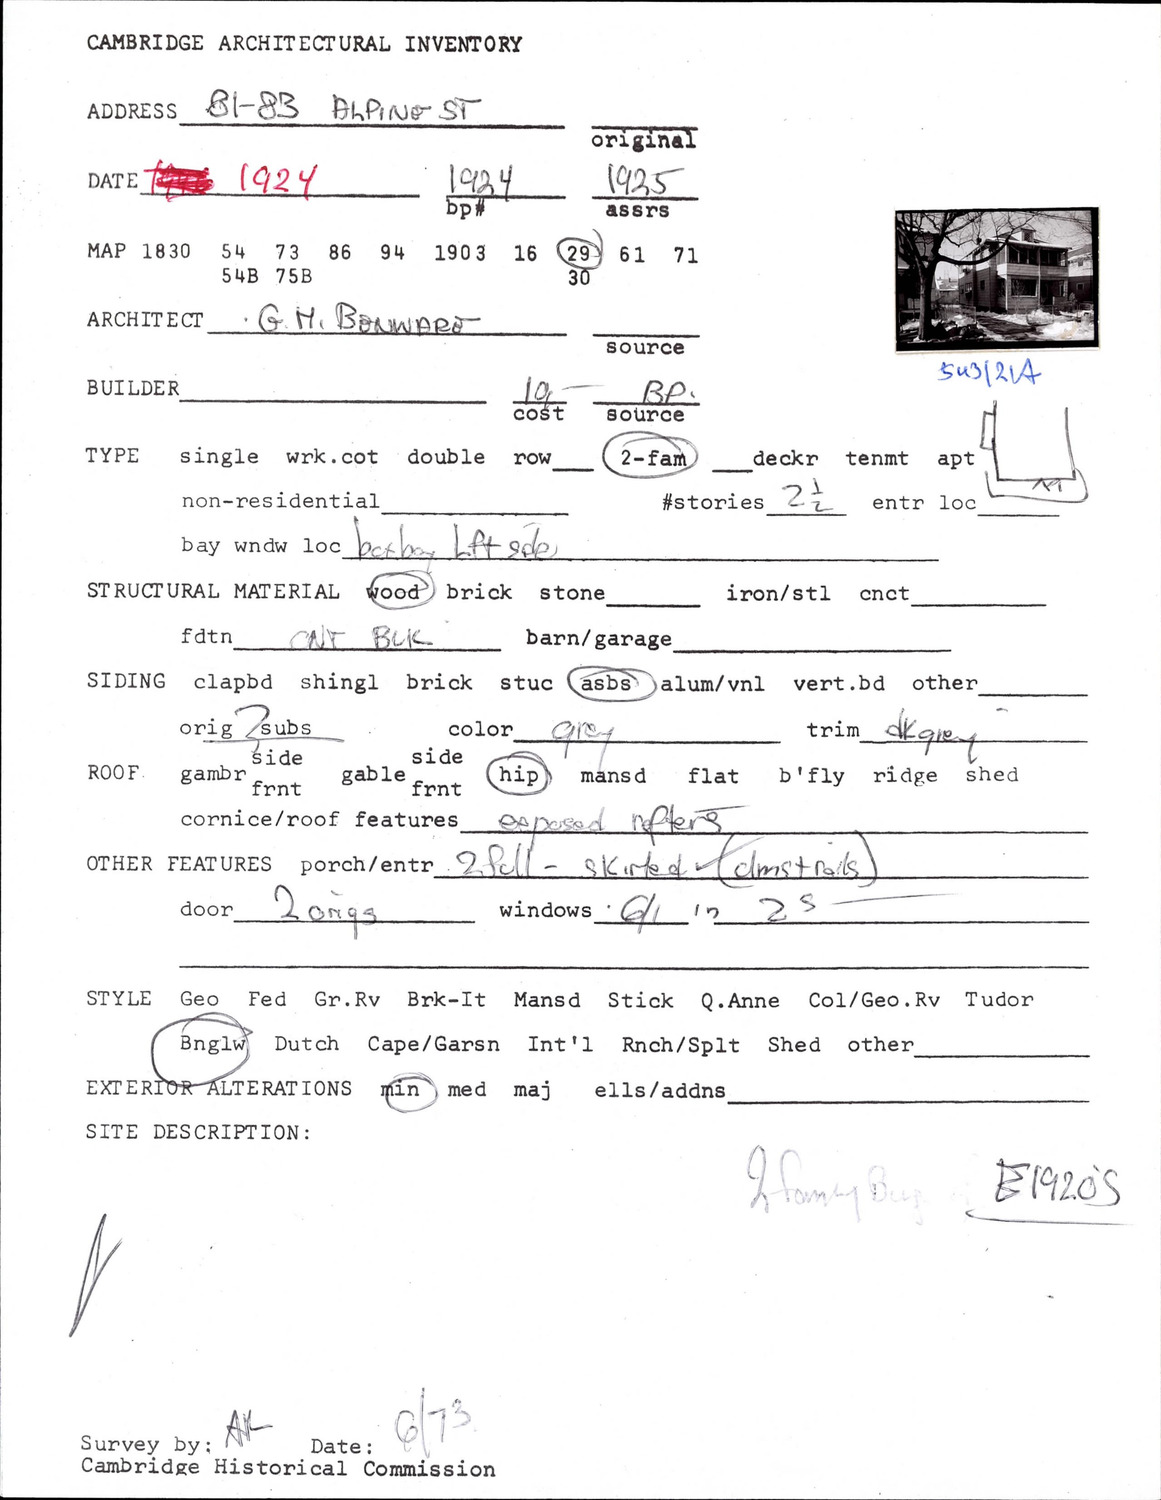 CAMBRIDGE ARCHITECTURAL INVENTORY
ADDRESS 81-83 ALPINE ST
original
DATE 1924 1924 1925
bp# assrs
MAP 1830 54 73 86 94 1903 16 29 61 71
54B 75B 30
ARCHITECT G.H. 
source
BUILDER 10 — BP.
cost source
TYPE single wrk.cot double row 2-fam deckr tenmt apt
non-residential #stories 2 1/2 entr loc
bay wndw loc boxbay left side
STRUCTURAL MATERIAL wood brick stone iron/stl cnct
fdtn CNT BLK barn/garage
SIDING clapbd shingl brick stuc asbs alum/vnl vert.bd other
orig ? subs color grey trim dk grey
side side
ROOF gambr gable hip mansd flat b'fly ridge shed
frnt frnt
cornice/roof features exposed rafters
OTHER FEATURES porch/entr 2 full - skirted (clmst rails)
door 2 origs windows 6/1 in 2s
STYLE Geo Fed Gr.Rv Brk-It Mansd Stick Q.Anne Col/Geo.Rv Tudor
Bnglw Dutch Cape/Garsn Int'l Rnch/Splt Shed other
EXTERIOR ALTERATIONS min med maj ells/addns
SITE DESCRIPTION:
2 family E1920'S
Survey by: AK Date: 6/73
Cambridge Historical Commission
543/21A